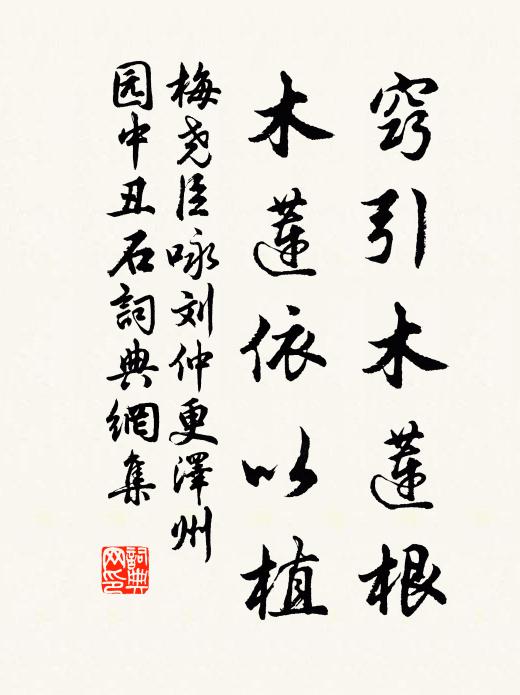 窍引木莲根
木莲依以植
梅尧臣咏刘仲更澤州
园中丑石詞典網集
詞典
网印